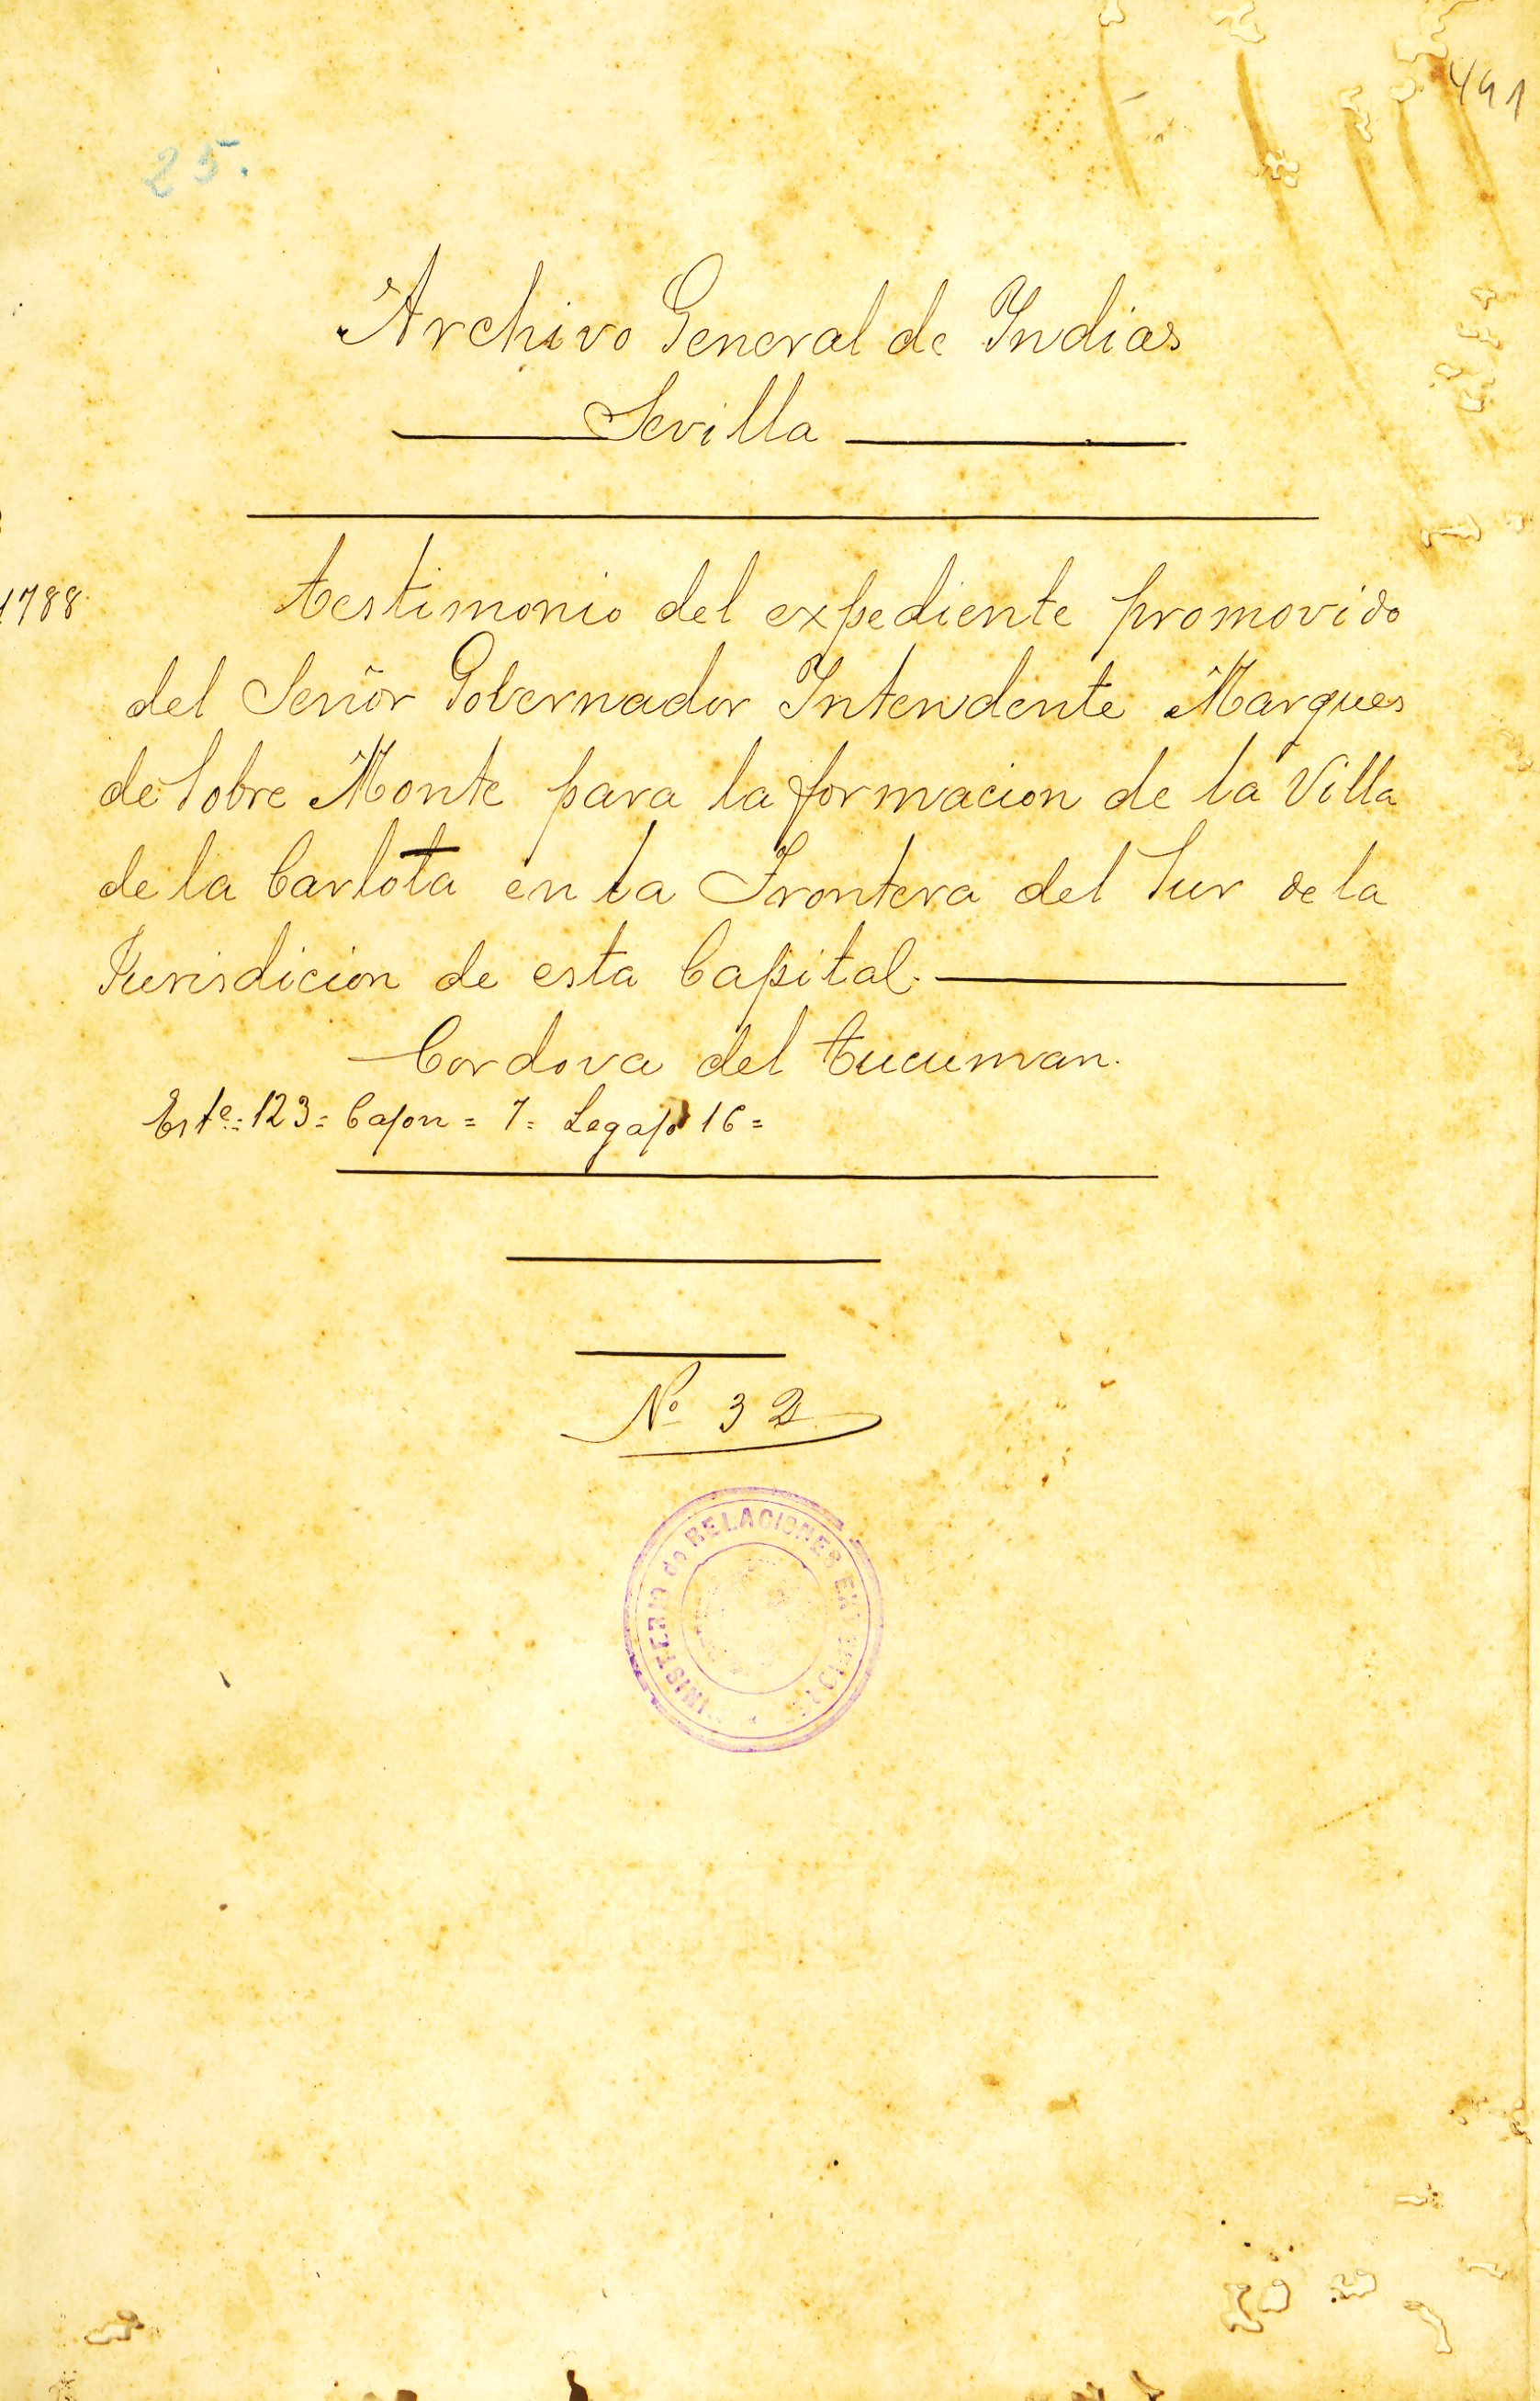 491
25.
Archivo General de Indias
Sevilla
1788
testimonio del expediente promovido
del Señor Gobernador Intendente Marques
de Sobre Monte para la formacion de la Villa
de la Carlota en la Frontera del Sur de la
Jurisdicion de esta Capital.
Cordova del tucuman.
Este.=123= Cajon = 7= Legajo 16=
Nº 32
MINISTERIO de RELACIONES EXTERIORES